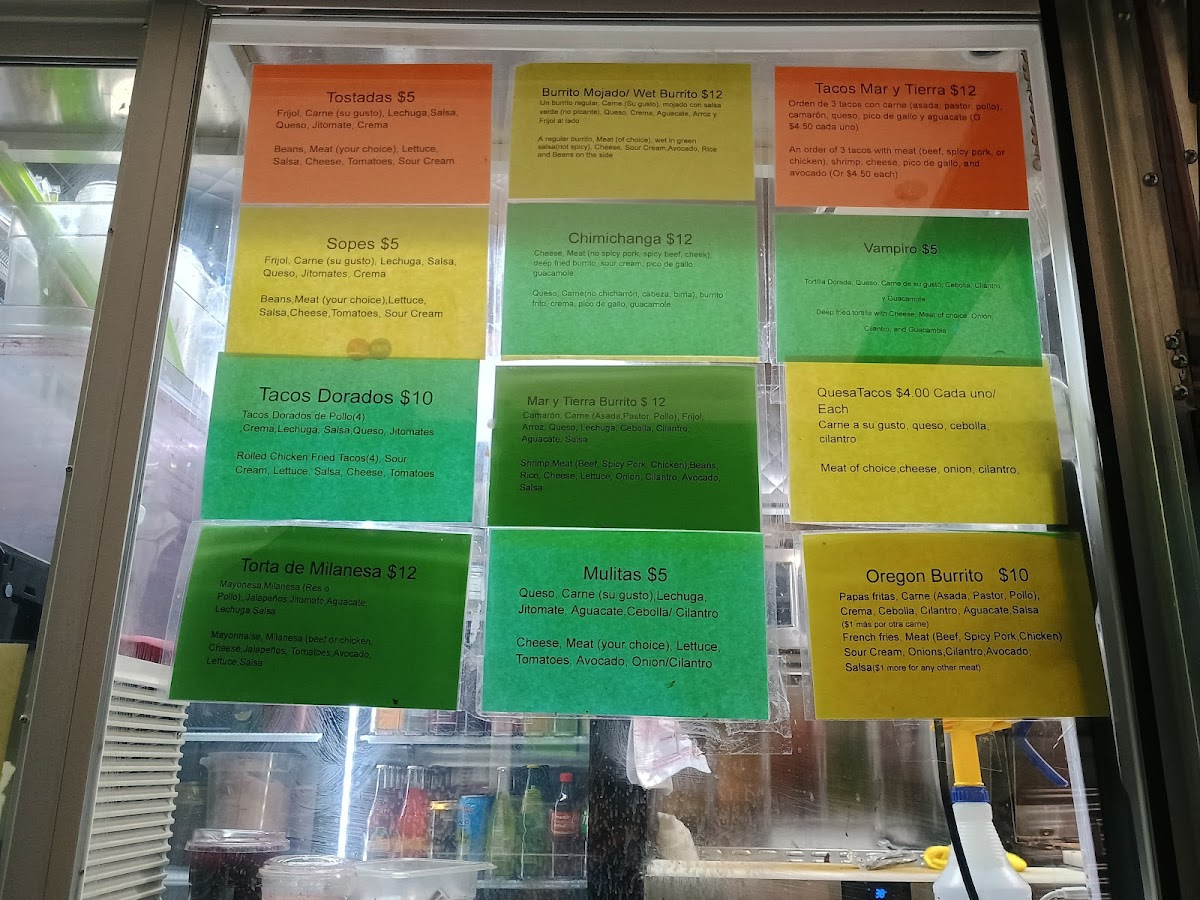 Tostadas $5
Frijol, Carne (su gusto), Lechuga,Salsa,
Queso, Jitomate, Crema
Beans, Meat (your choice), Lettuce,
Salsa, Cheese, Tomatoes, Sour Cream
Burrito Mojado/ Wet Burrito $12
Un burrito regular, Carne (Su gusto), mojado con salsa
verde (no picante), Queso, Crema, Aguacate, Arroz y
Frijol al lado
A regular burrito, Meat (of choice), wet in green
salsa(not spicy), Cheese, Sour Cream,Avocado, Rice
and Beans on the side
Tacos Mar y Tierra $12
Orden de 3 tacos con carne (asada, pastor, pollo),
camarón, queso, pico de gallo y aguacate (O
$4.50 cada uno)
An order of 3 tacos with meat (beef, spicy pork, or
chicken), shrimp, cheese, pico de gallo, and
avocado (Or $4.50 each)
Sopes $5
Frijol, Carne (su gusto), Lechuga, Salsa,
Queso, Jitomates, Crema
Beans,Meat (your choice),Lettuce,
Salsa,Cheese,Tomatoes, Sour Cream
Chimichanga $12
Cheese, Meat (no spicy pork, spicy beef, cheek),
deep fried burrito, sour cream, pico de gallo,
guacamole
Queso, Carne(no chicharrón, cabeza, birria), burrito
frito, crema, pico de gallo, guacamole
Vampiro $5
Tortilla Dorada, Queso, Carne de su gusto, Cebolla, Cilantro,
y Guacamole
Deep fried tortilla with Cheese, Meat of choice, Onion,
Cilantro, and Guacamole
Tacos Dorados $10
Tacos Dorados de Pollo(4)
,Crema,Lechuga, Salsa,Queso, Jitomates
Rolled Chicken Fried Tacos(4), Sour
Cream, Lettuce, Salsa, Cheese, Tomatoes
Mar y Tierra Burrito $ 12
Camarón, Carne (Asada,Pastor, Pollo), Frijol,
Arroz, Queso, Lechuga, Cebolla, Cilantro,
Aguacate, Salsa
Shrimp,Meat (Beef, Spicy Pork, Chicken),Beans,
Rice, Cheese, Lettuce, Onion, Cilantro, Avocado,
Salsa
QuesaTacos $4.00 Cada uno/
Each
Carne a su gusto, queso, cebolla,
cilantro
Meat of choice,cheese, onion, cilantro,
Torta de Milanesa $12
Mayonesa,Milanesa (Res o
Pollo),,Jalapeños,Jitomate,Aguacate,
Lechuga,Salsa
Mayonnaise, Milanesa (beef or chicken,
Cheese,Jalapeños, Tomatoes,Avocado,
Lettuce,Salsa
Mulitas $5
Queso, Carne (su gusto),Lechuga,
Jitomate, Aguacate,Cebolla/ Cilantro
Cheese, Meat (your choice), Lettuce,
Tomatoes, Avocado, Onion/Cilantro
Oregon Burrito $10
Papas fritas, Carne (Asada, Pastor, Pollo),
Crema, Cebolla, Cilantro, Aguacate,Salsa
($1 más por otra carne)
French fries, Meat (Beef, Spicy Pork,Chicken)
Sour Cream, Onions,Cilantro,Avocado,
Salsa($1 more for any other meat)